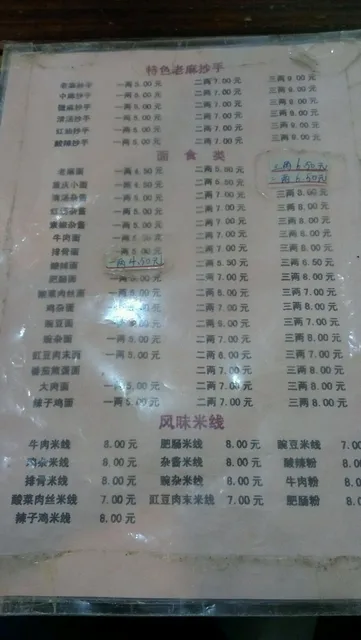 特色老麻抄手
老麻抄手 一两5.00元 二两7.00元 三两9.00元
中麻抄手 一两5.00元 二两7.00元 三两8.00元
微麻抄手 一两5.00元 二两7.00元 三两9.00元
清汤抄手 一两5.00元 二两7.00元 三两9.00元
红油抄手 一两5.00元 二两7.00元 三两9.00元
酸辣抄手 一两5.00元 二两7.00元 三两9.00元
面食类
二两6.50元
老麻面 一两4.50元 二两5.00元 一两6.60元
重庆小面 一两4.50元 二两6.00元
清汤杂酱 一两5.00元 二两7.00元 三两8.00元
红汤杂酱 一两5.00元 二两7.00元 三两8.00元
素椒杂酱 一两5.00元 二两7.00元 三两8.00元
牛肉面 二两7.00元 三两8.00元
排骨面 一两5.00元 二两7.00元 三两8.00元
一两4.50元 二两5.50元 三两6.50元
肥肠面 二两7.00元 三两8.00元
酸菜肉丝面 二两6.00元 三两7.00元
鸡杂面 二两7.00元 三两8.00元
豌豆面 二两6.00元 三两7.00元
豌杂面 一两5.00元 二两7.00元 三两8.00元
豇豆肉末面 一两5.00元 二两6.00元 三两7.00元
番茄煎蛋面 一两5.00元 二两7.00元 三两8.00元
大肉面 一两5.00元 二两7.00元 三两8.00元
辣子鸡面 一两5.00元 二两7.00元 三两8.00元
风味米线
牛肉米线 8.00元 肥肠米线 8.00元 豌豆米线 7.00
鸡杂米线 8.00元 杂酱米线 8.00元 酸辣粉 7.00
排骨米线 8.00元 豌杂米线 8.00元 牛肉粉 8.00
酸菜肉丝米线 7.00元 豇豆肉末米线 7.00元 肥肠粉 8.00
辣子鸡米线 8.00元